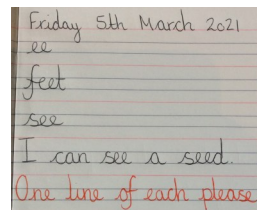 Friday 5th March 2021
ee
feet
see
I can see a seed.
One line of each please